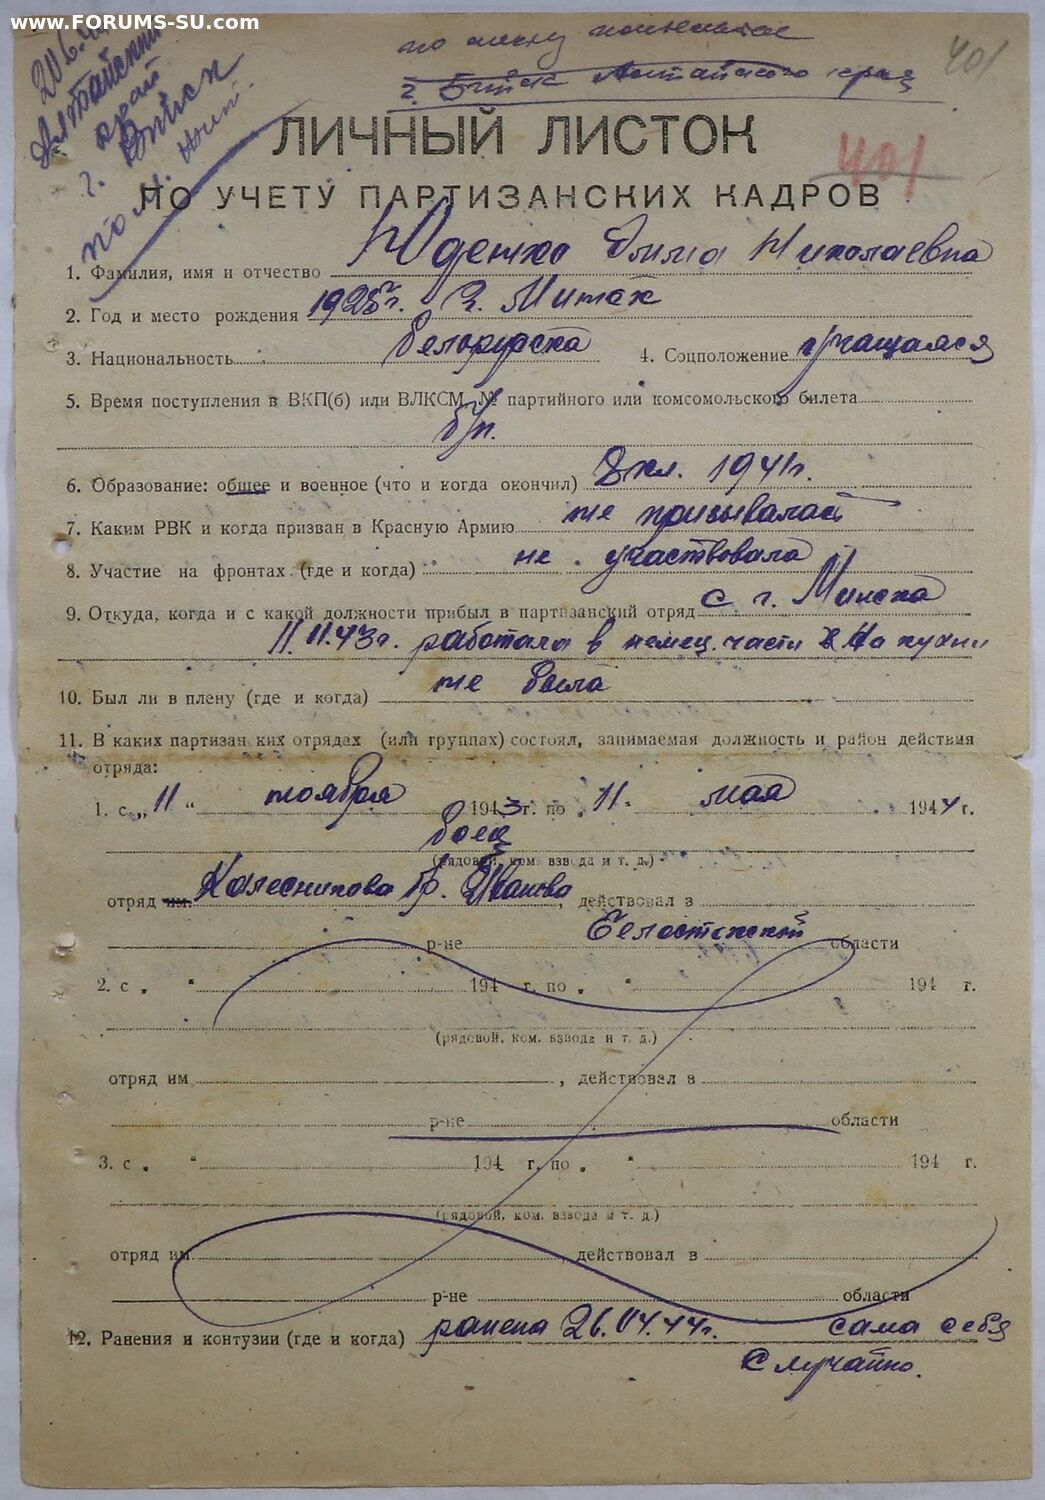 www.FORUMS-SU.com
по месту жительства
г. Бийск Алтайского края
401
Алтайский
край
г. Бийск
по м. жит.
401
ЛИЧНЫЙ ЛИСТОК
ПО УЧЕТУ ПАРТИЗАНСКИХ КАДРОВ
1. Фамилия, имя и отчество Юденко Николаевна
2. Год и место рождения 1925 г. г. Минск
3. Национальность белорусска 4. Соцположение учащаяся
5. Время поступления в ВКП(б) или ВЛКСМ, № партийного или комсомольского билета
б/п.
6. Образование: общее и военное (что и когда окончил) 8 кл. 1941 г.
7. Каким РВК и когда призван в Красную Армию не призывалась
8. Участие на фронтах (где и когда) не участвовала
9. Откуда, когда и с какой должности прибыл в партизанский отряд с г. Минска
11.11.43 г. работала в немец. части на кухни
10. Был ли в плену (где и когда) не была
11. В каких партизан ких отрядах (или группах) состоял, занимаемая должность и район действия
отряда:
1. с „ 11 “ ноября 1943 г. по „ 11. мая 1944 г.
боец
(рядовой, ком. взвода и т. д.)
отряд им. Колесникова бр. Иванова, действовал в
р-не Белостокской области
2. с „ “ 194 г. по „ “ 194 г.
(рядовой, ком. взвода и т. д.)
отряд им , действовал в
р-не области
3. с „ “ 194 г. по „ “ 194 г.
(рядовой, ком. взвода и т. д.)
отряд им , действовал в
р-не области
12. Ранения и контузии (где и когда) ранена 26.04.44 г. сама себя
случайно.